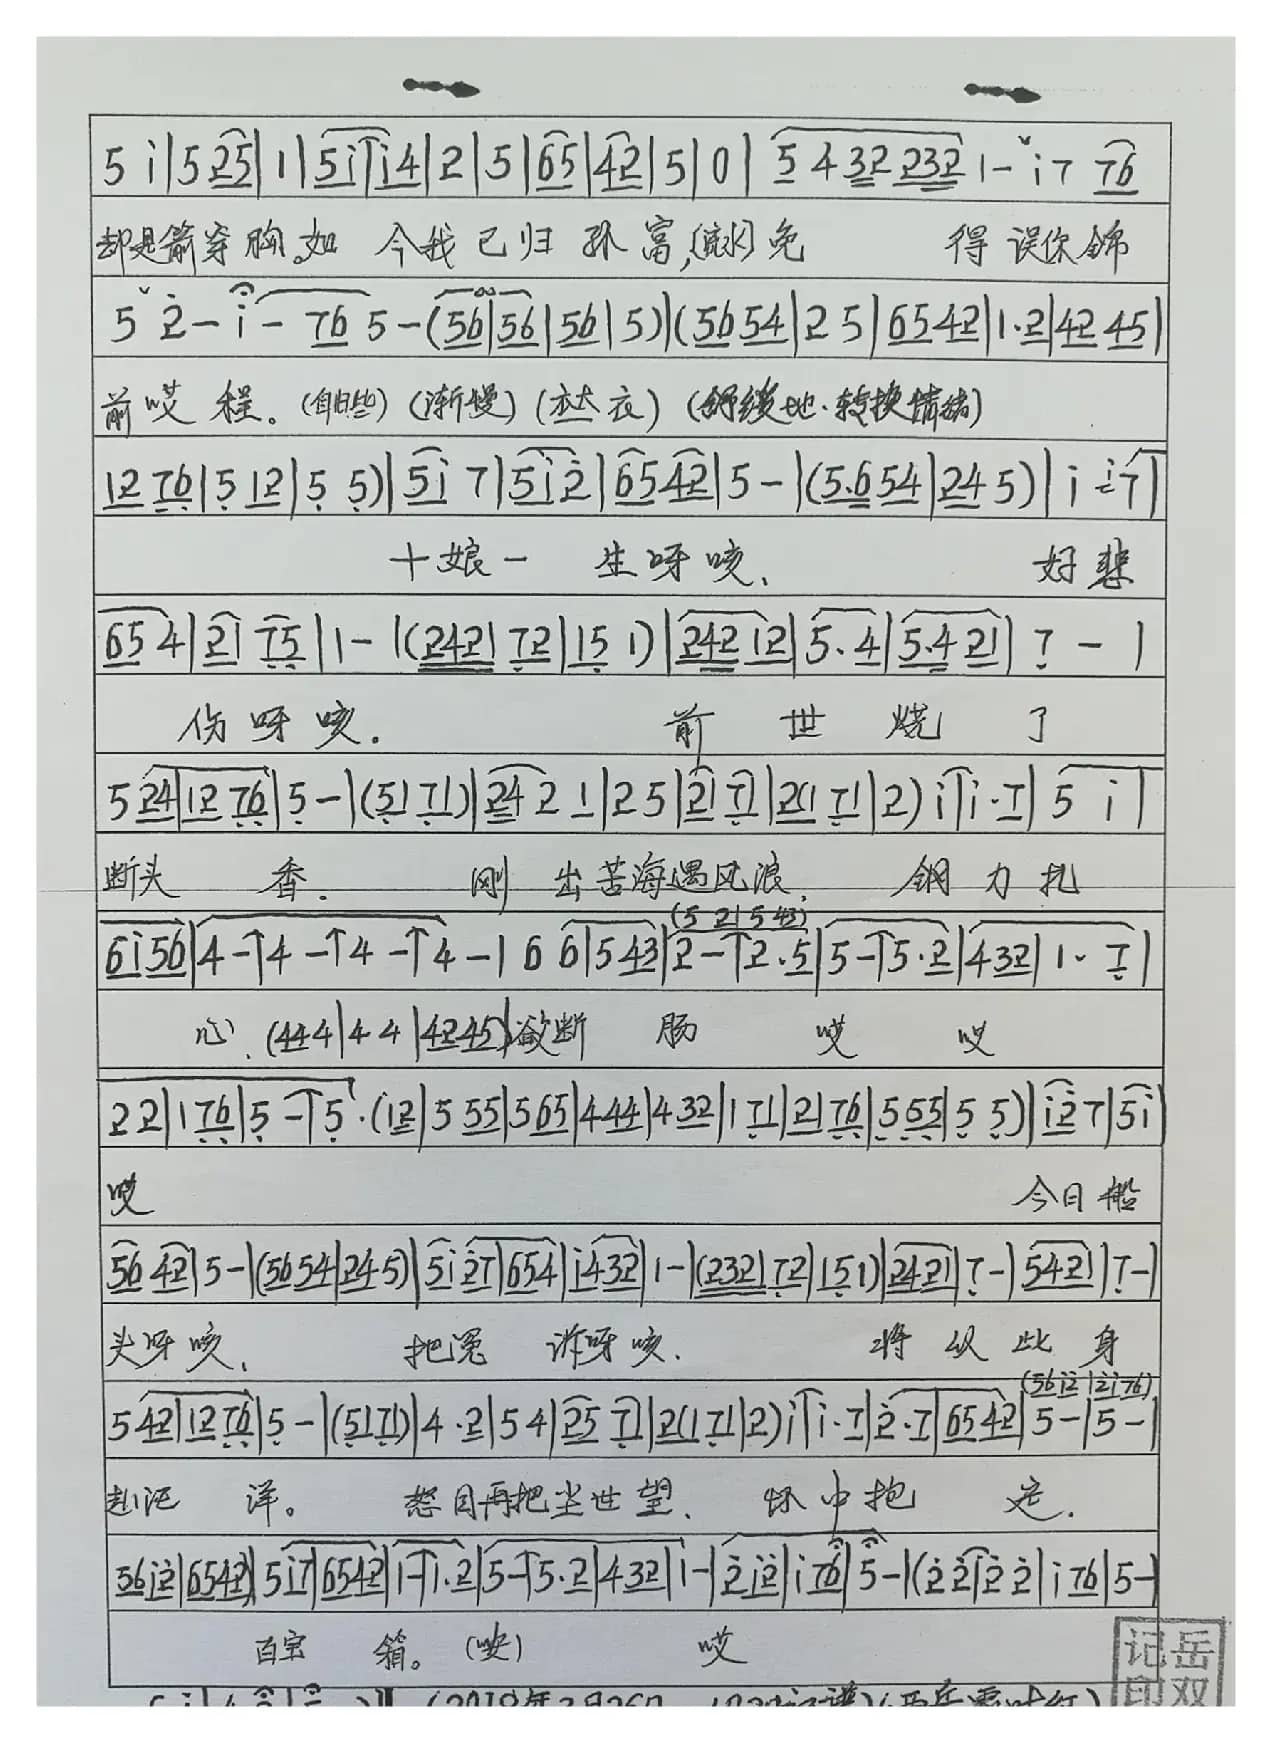 5 i | 5 25 | 1 | 5 i | i 4 | 2 | 5 | 65 | 42 | 5 | 0 | 5 4 32 232 1 - i 7 76
却是箭穿胸。如 今我已归 孙富,(流水)免 得 误你锦
5 2 - i - 76 5 - (56 | 56 | 56 | 5) | (56 54 | 2 5 | 65 42 | 1·2 | 42 45 |
前哎 程。(自由些) (渐慢) (大衣) (舒缓地·转换情绪)
12 76 | 5 12 | 5 5) | 5i 7 | 5i 2 | 65 42 | 5 - | (5·6 54 | 24 5) | i i7 |
十娘一 生呀咳、 好悲
65 4 | 21 75 | 1 - | (2421 72 | 15 1) | 242 12 | 5· 4 | 5·4 21 | 7 - |
伤呀咳. 前 世 烧 了
5 24 | 12 76 | 5 - | (51 71) | 24 2 1 | 2 5 | 21 71 | 2(1 71 | 2) i | i·7 | 5 i |
断头 香. 刚 出苦海遇风浪, 钢刀扎
(5 2 | 5 43)
6i 56 | 4 - | 4 - | 4 - | 4 - | 6 6 | 5 43 | 2 - | 2·5 | 5 - | 5·2 | 4 32 | 1· 7 |
心、(44 4 | 4 4 | 42 45) 欲断 肠 哎 哎
2 2 | 1 76 | 5 - | 5·(12 | 5 55 | 5 65 | 4 44 | 4 32 | 1 71 | 21 76 | 5 55 | 5 5) | i2 7 | 5i |
哎 今日船
56 42 | 5 - | (56 54 | 24 5) | 5i 27 | 65 4 | i4 32 | 1 - | (232 | 72 | 15 1) | 24 21 | 7 - | 54 21 | 7 - |
头呀咳、 把冤 诉呀咳. 将 从 此 身
(56 i2 | 2i 76)
5 42 | 12 76 | 5 - | (51 71) | 4 · 2 | 5 4 | 25 71 | 2(1 71 | 2) i | i·7 | 2·7 | 65 42 | 5 - | 5 - |
赴汪 洋。 怒目再把尘世望、 怀中抱 定.
56 i2 | 65 42 | 5 i7 | 65 42 | 1 - | 1·2 | 5 - | 5·2 | 4 32 | 1 - | 2 i2 | i 76 | 5 - | (2 2 | 2 2 | i 76 | 5 -
百宝 箱。 哎
记岳
印双